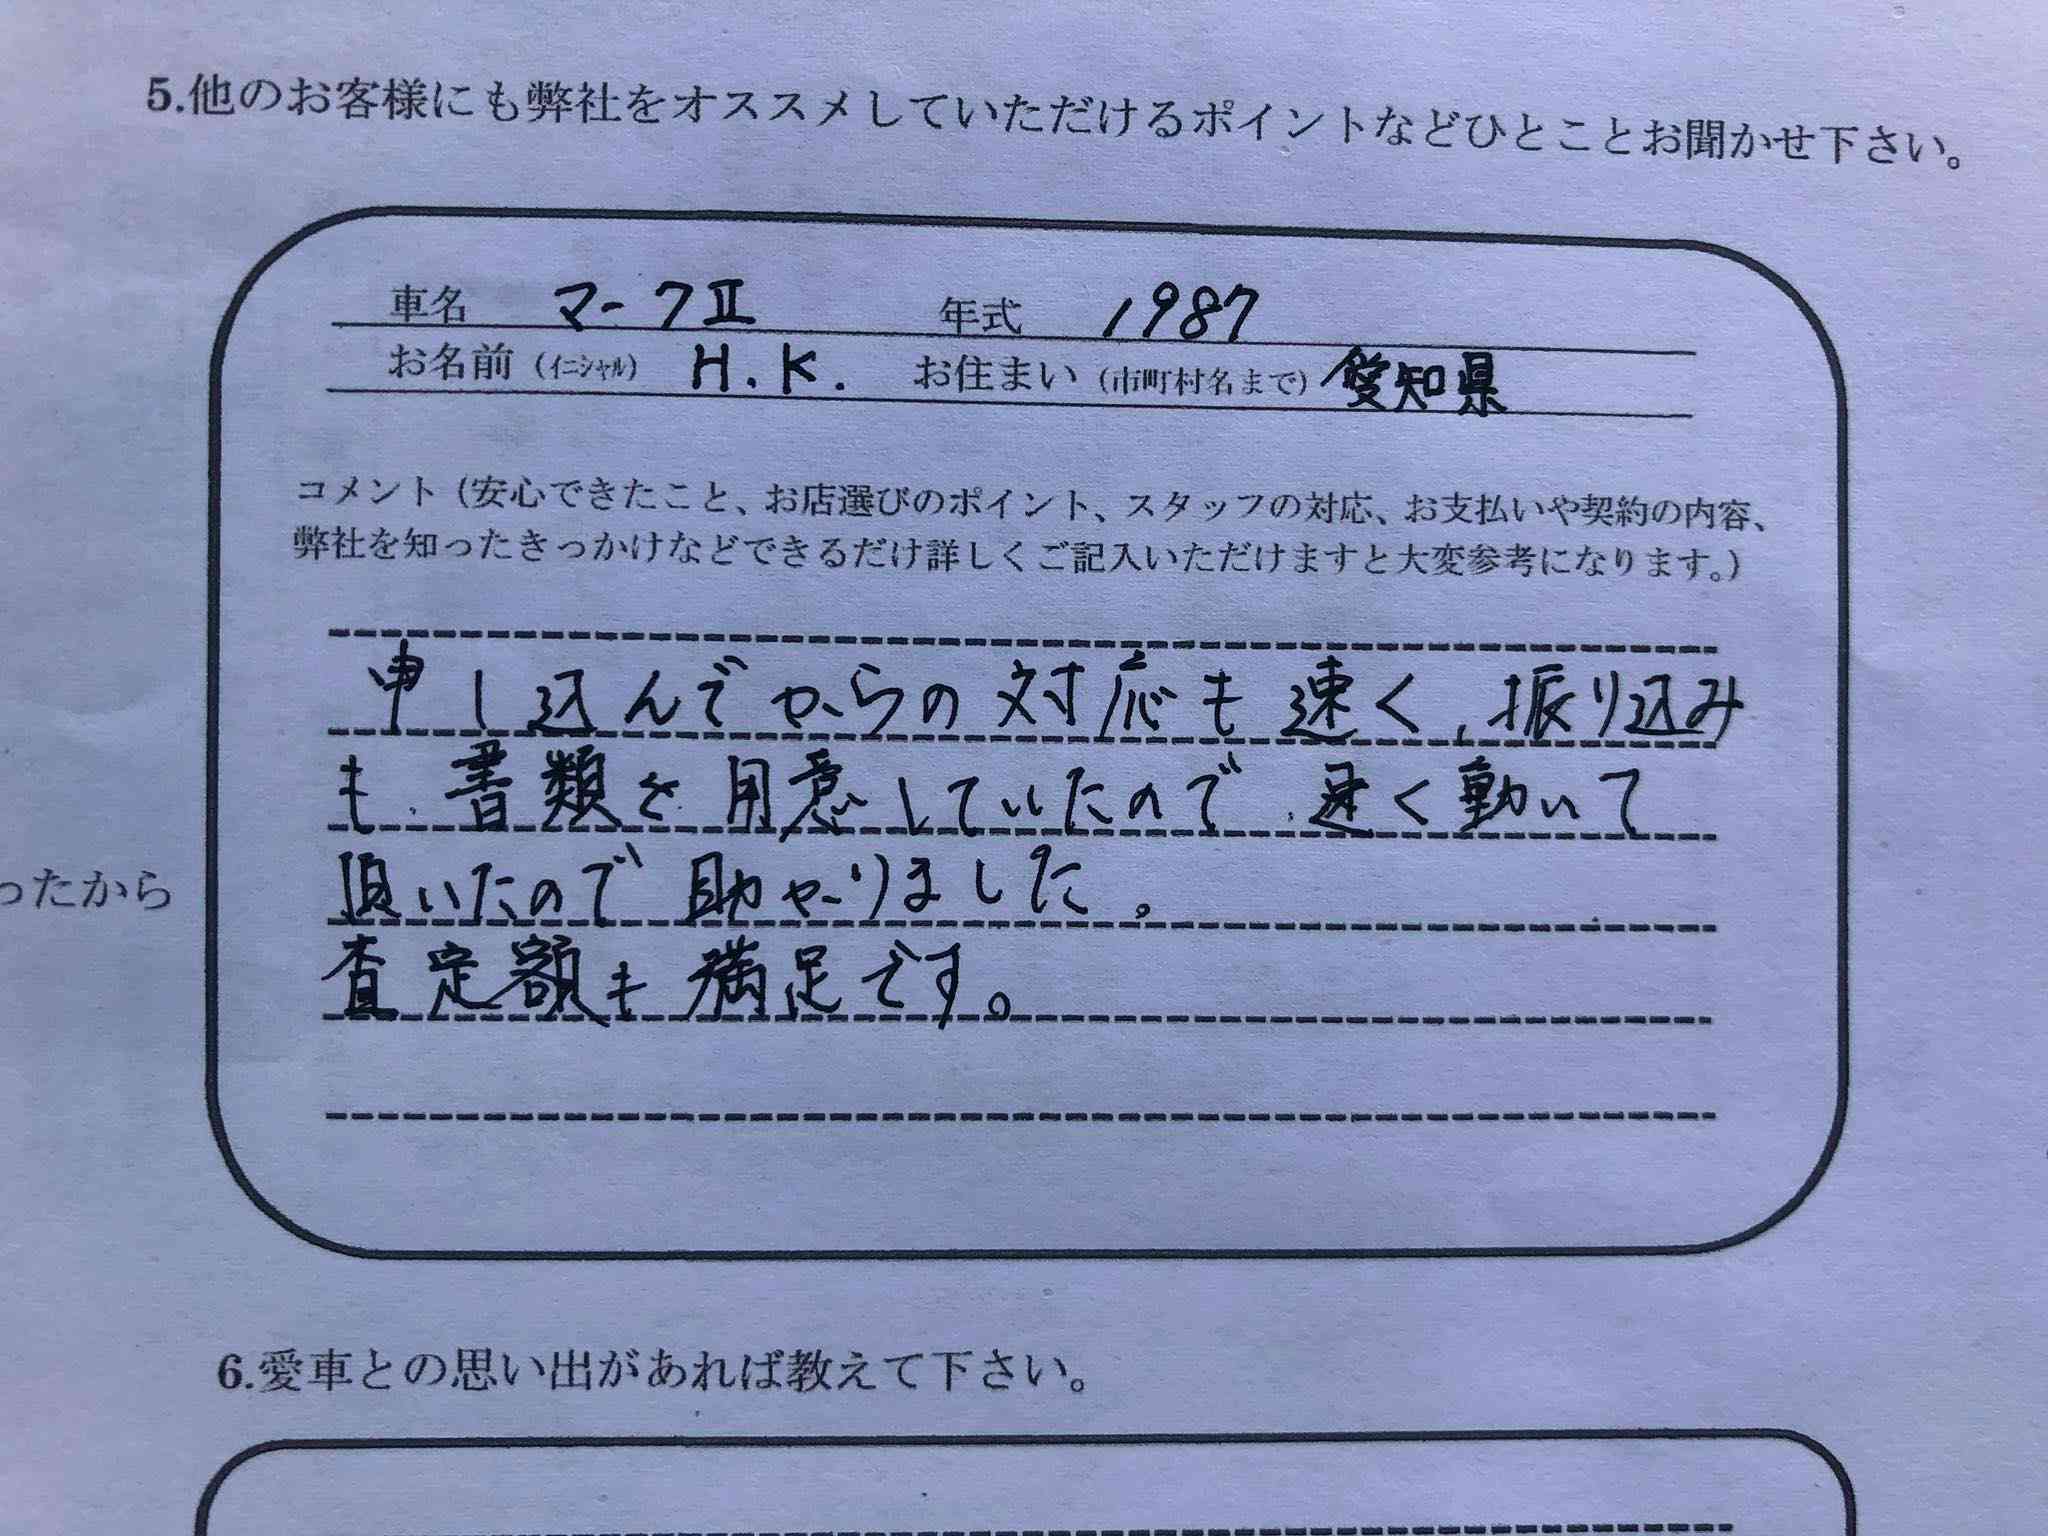 5.他のお客様にも弊社をオススメしていただけるポイントなどひとことお聞かせ下さい。
車名 マークII 年式 1987
お名前(イニシャル) H.K. お住まい(市町村名まで) 愛知県
コメント(安心できたこと、お店選びのポイント、スタッフの対応、お支払いや契約の内容、
弊社を知ったきっかけなどできるだけ詳しくご記入いただけますと大変参考になります。)
申し込んでからの対応も速く、振り込み
も、書類を用意していたので、速く動いて
頂いたので助かりました。
査定額も満足です。
ったから
6.愛車との思い出があれば教えて下さい。